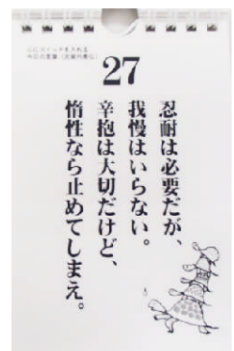 27
忍耐は必要だが、
我慢はいらない。
辛抱は大切だけど、
惰性なら止めてしまえ。